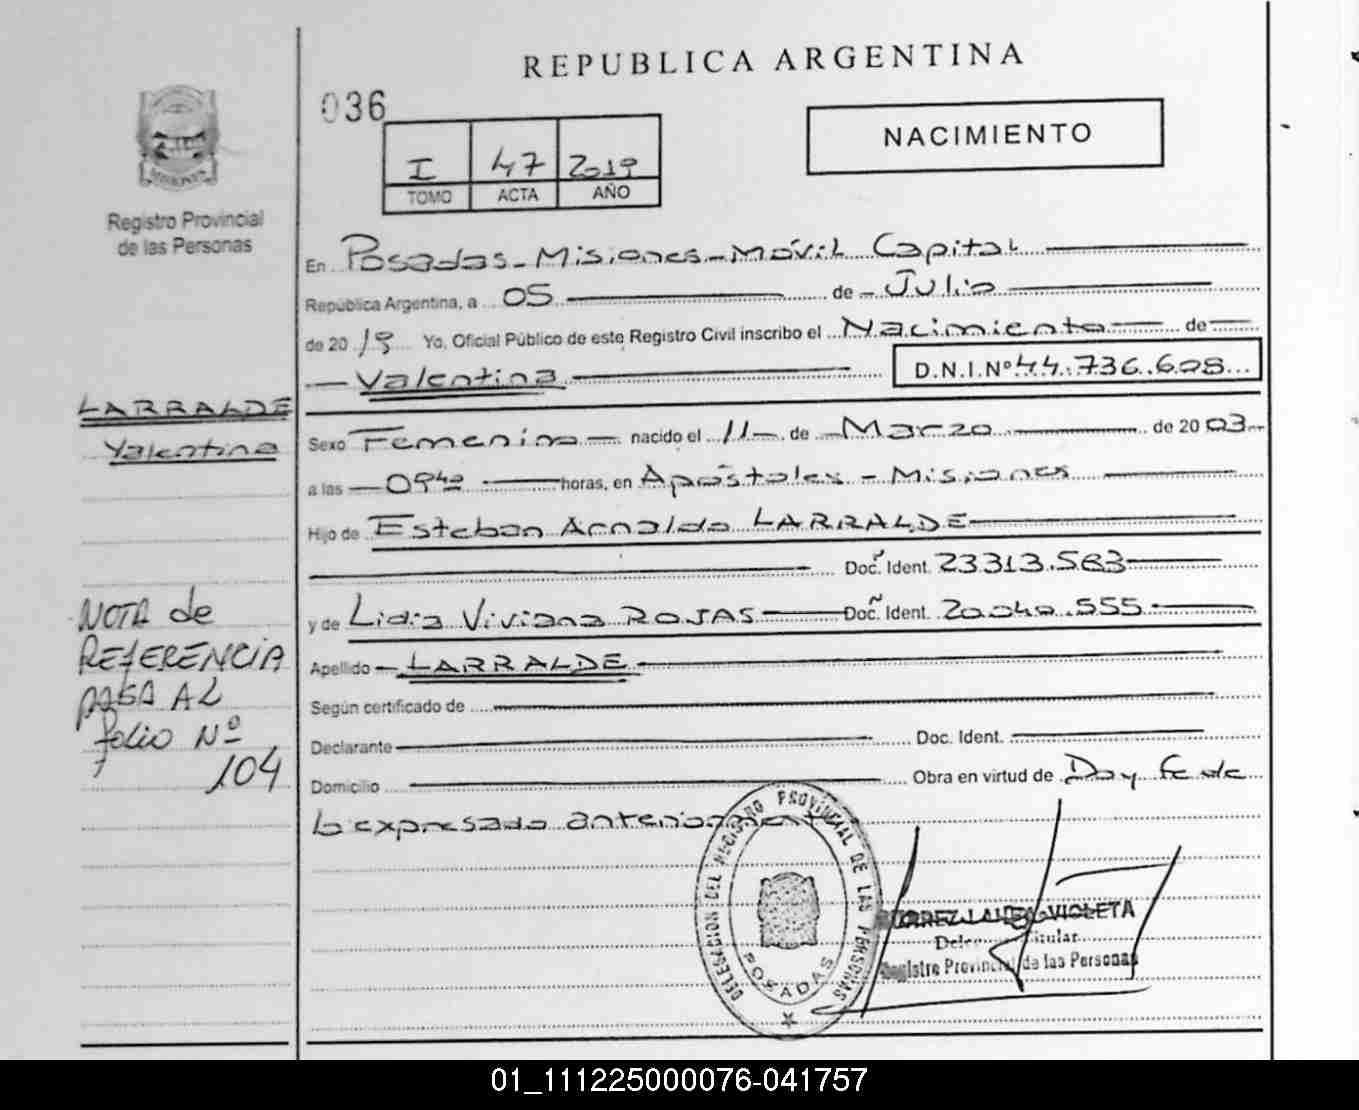 REPUBLICA ARGENTINA
036
NACIMIENTO
I 47 2019
TOMO ACTA AÑO
MISIONES
Registro Provincial
de las Personas
En Posadas - Misiones - Móvil Capital
República Argentina, a 05 de Julio
de 2019 Yo, Oficial Público de este Registro Civil inscribo el Nacimiento de
Valentina D.N.I.Nº 44.736.608
LARRALDE
Valentina
Sexo Femenino nacido el 11 de Marzo de 2003
a las 09 horas, en Apóstoles - Misiones
Hijo de Esteban Arnaldo LARRALDE
Doc. Ident. 23313.583
y de Lidia Viviana ROJAS Doc. Ident. 555
Apellido LARRALDE
Según certificado de
Declarante Doc. Ident.
Domicilio Obra en virtud de Doy fe de
lo expresado anteriormente
NOTA de
REFERENCIA
PASA AL
folio Nº
104
DELEGACION DEL REGISTRO PROVINCIAL DE LAS PERSONAS
POSADAS
VIOLETA
Titular
Registro Provincial de las Personas
01_111225000076-041757